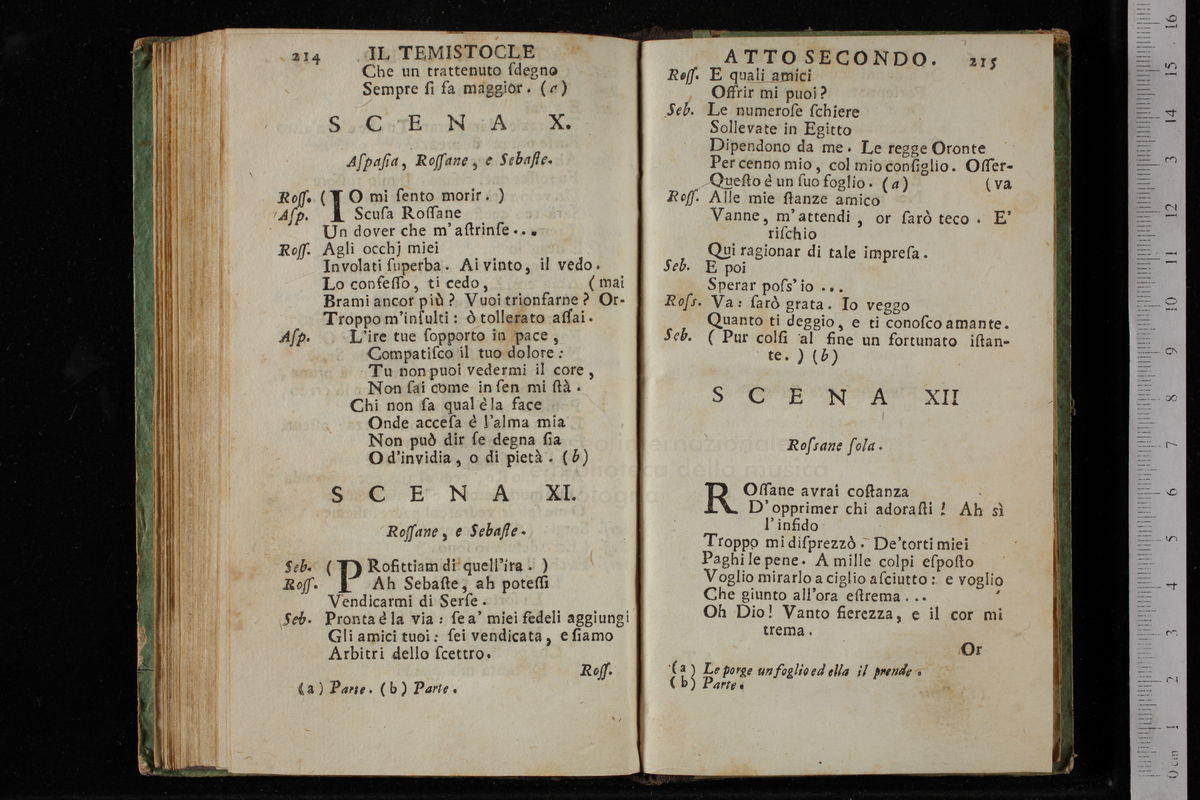 214 IL TEMISTOCLE
Che un trattenuto ſdegno
Sempre ſi fa maggior. (a)
SCENA X.
Aſpaſia, Roſſane, e Sebaſte.
Roſſ. (IO mi ſento morir. )
Aſp. Scuſa Roſſane
Un dover che m'aſtrinſe...
Roſſ. Agli occhj miei
Involati ſuperba. Ai vinto, il vedo.
Lo confeſſo, ti cedo, (mai
Brami ancor più? Vuoi trionfarne? Or-
Troppo m'inſulti: ò tollerato aſſai.
Aſp. L'ire tue ſopporto in pace,
Compatiſco il tuo dolore:
Tu non puoi vedermi il core,
Non ſai come in ſen mi ſtà.
Chi non ſa qual è la face
Onde acceſa è l'alma mia
Non può dir ſe degna ſia
O d'invidia, o di pietà. (b)
SCENA XI.
Roſſane, e Sebaſte.
Seb. (PRofittiam di quell'ira. )
Roſſ. Ah Sebaſte, ah poteſſi
Vendicarmi di Serſe.
Seb. Pronta è la via: ſe a' miei fedeli aggiungi
Gli amici tuoi: ſei vendicata, e ſiamo
Arbitri dello ſcettro.
Roſſ.
(a) Parte. (b) Parte.
ATTO SECONDO. 215
Roſſ. E quali amici
Offrir mi puoi?
Seb. Le numeroſe ſchiere
Sollevate in Egitto
Dipendono da me. Le regge Oronte
Per cenno mio, col mio conſiglio. Oſſer-
Queſto è un ſuo foglio. (a) (va
Roſſ. Alle mie ſtanze amico
Vanne, m'attendi, or ſarò teco. E'
riſchio
Qui ragionar di tale impreſa.
Seb. E poi
Sperar poſs'io ...
Roſs. Va: ſarò grata. Io veggo
Quanto ti deggio, e ti conoſco amante.
Seb. (Pur colſi al fine un fortunato iſtan-
te. ) (b)
SCENA XII
Roſsane ſola.
ROſſane avrai coſtanza
D'opprimer chi adoraſti! Ah sì
l'infido
Troppo mi diſprezzò. De'torti miei
Paghi le pene. A mille colpi eſpoſto
Voglio mirarlo a ciglio aſciutto: e voglio
Che giunto all'ora eſtrema...
Oh Dio! Vanto fierezza, e il cor mi
trema.
Or
(a) Le porge un foglio ed ella il prende.
(b) Parte.
0 cm 1 2 3 4 5 6 7 8 9 10 11 12 13 14 15 16